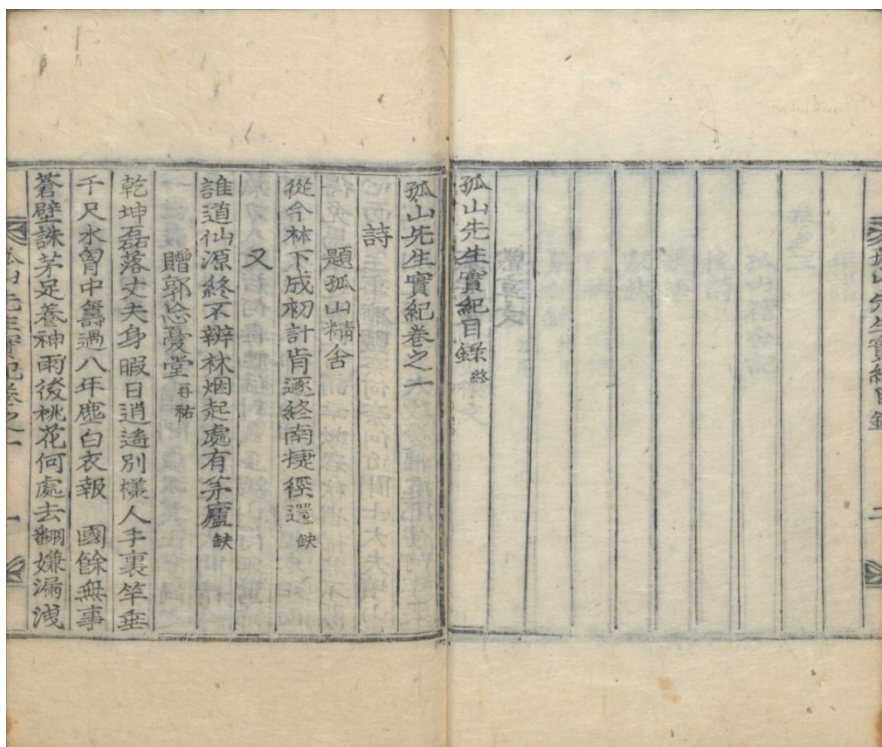 孤山先生實紀目錄
二
孤山先生實紀目錄 終
孤山先生實紀卷之一
詩
題孤山精舍
從今林下成初計肯逐終南捷徑還 缺
又
誰道仙源終不辨林烟起處有茅廬 缺
贈郭忘憂堂 再祐
乾坤磊落丈夫身暇日逍遙別樣人手裏竿垂
千尺水胷中籌過八年塵白衣報 國餘無事
蒼壁誅茅足養神雨後桃花何處去翻嫌漏洩
孤山先生實紀卷之一
一